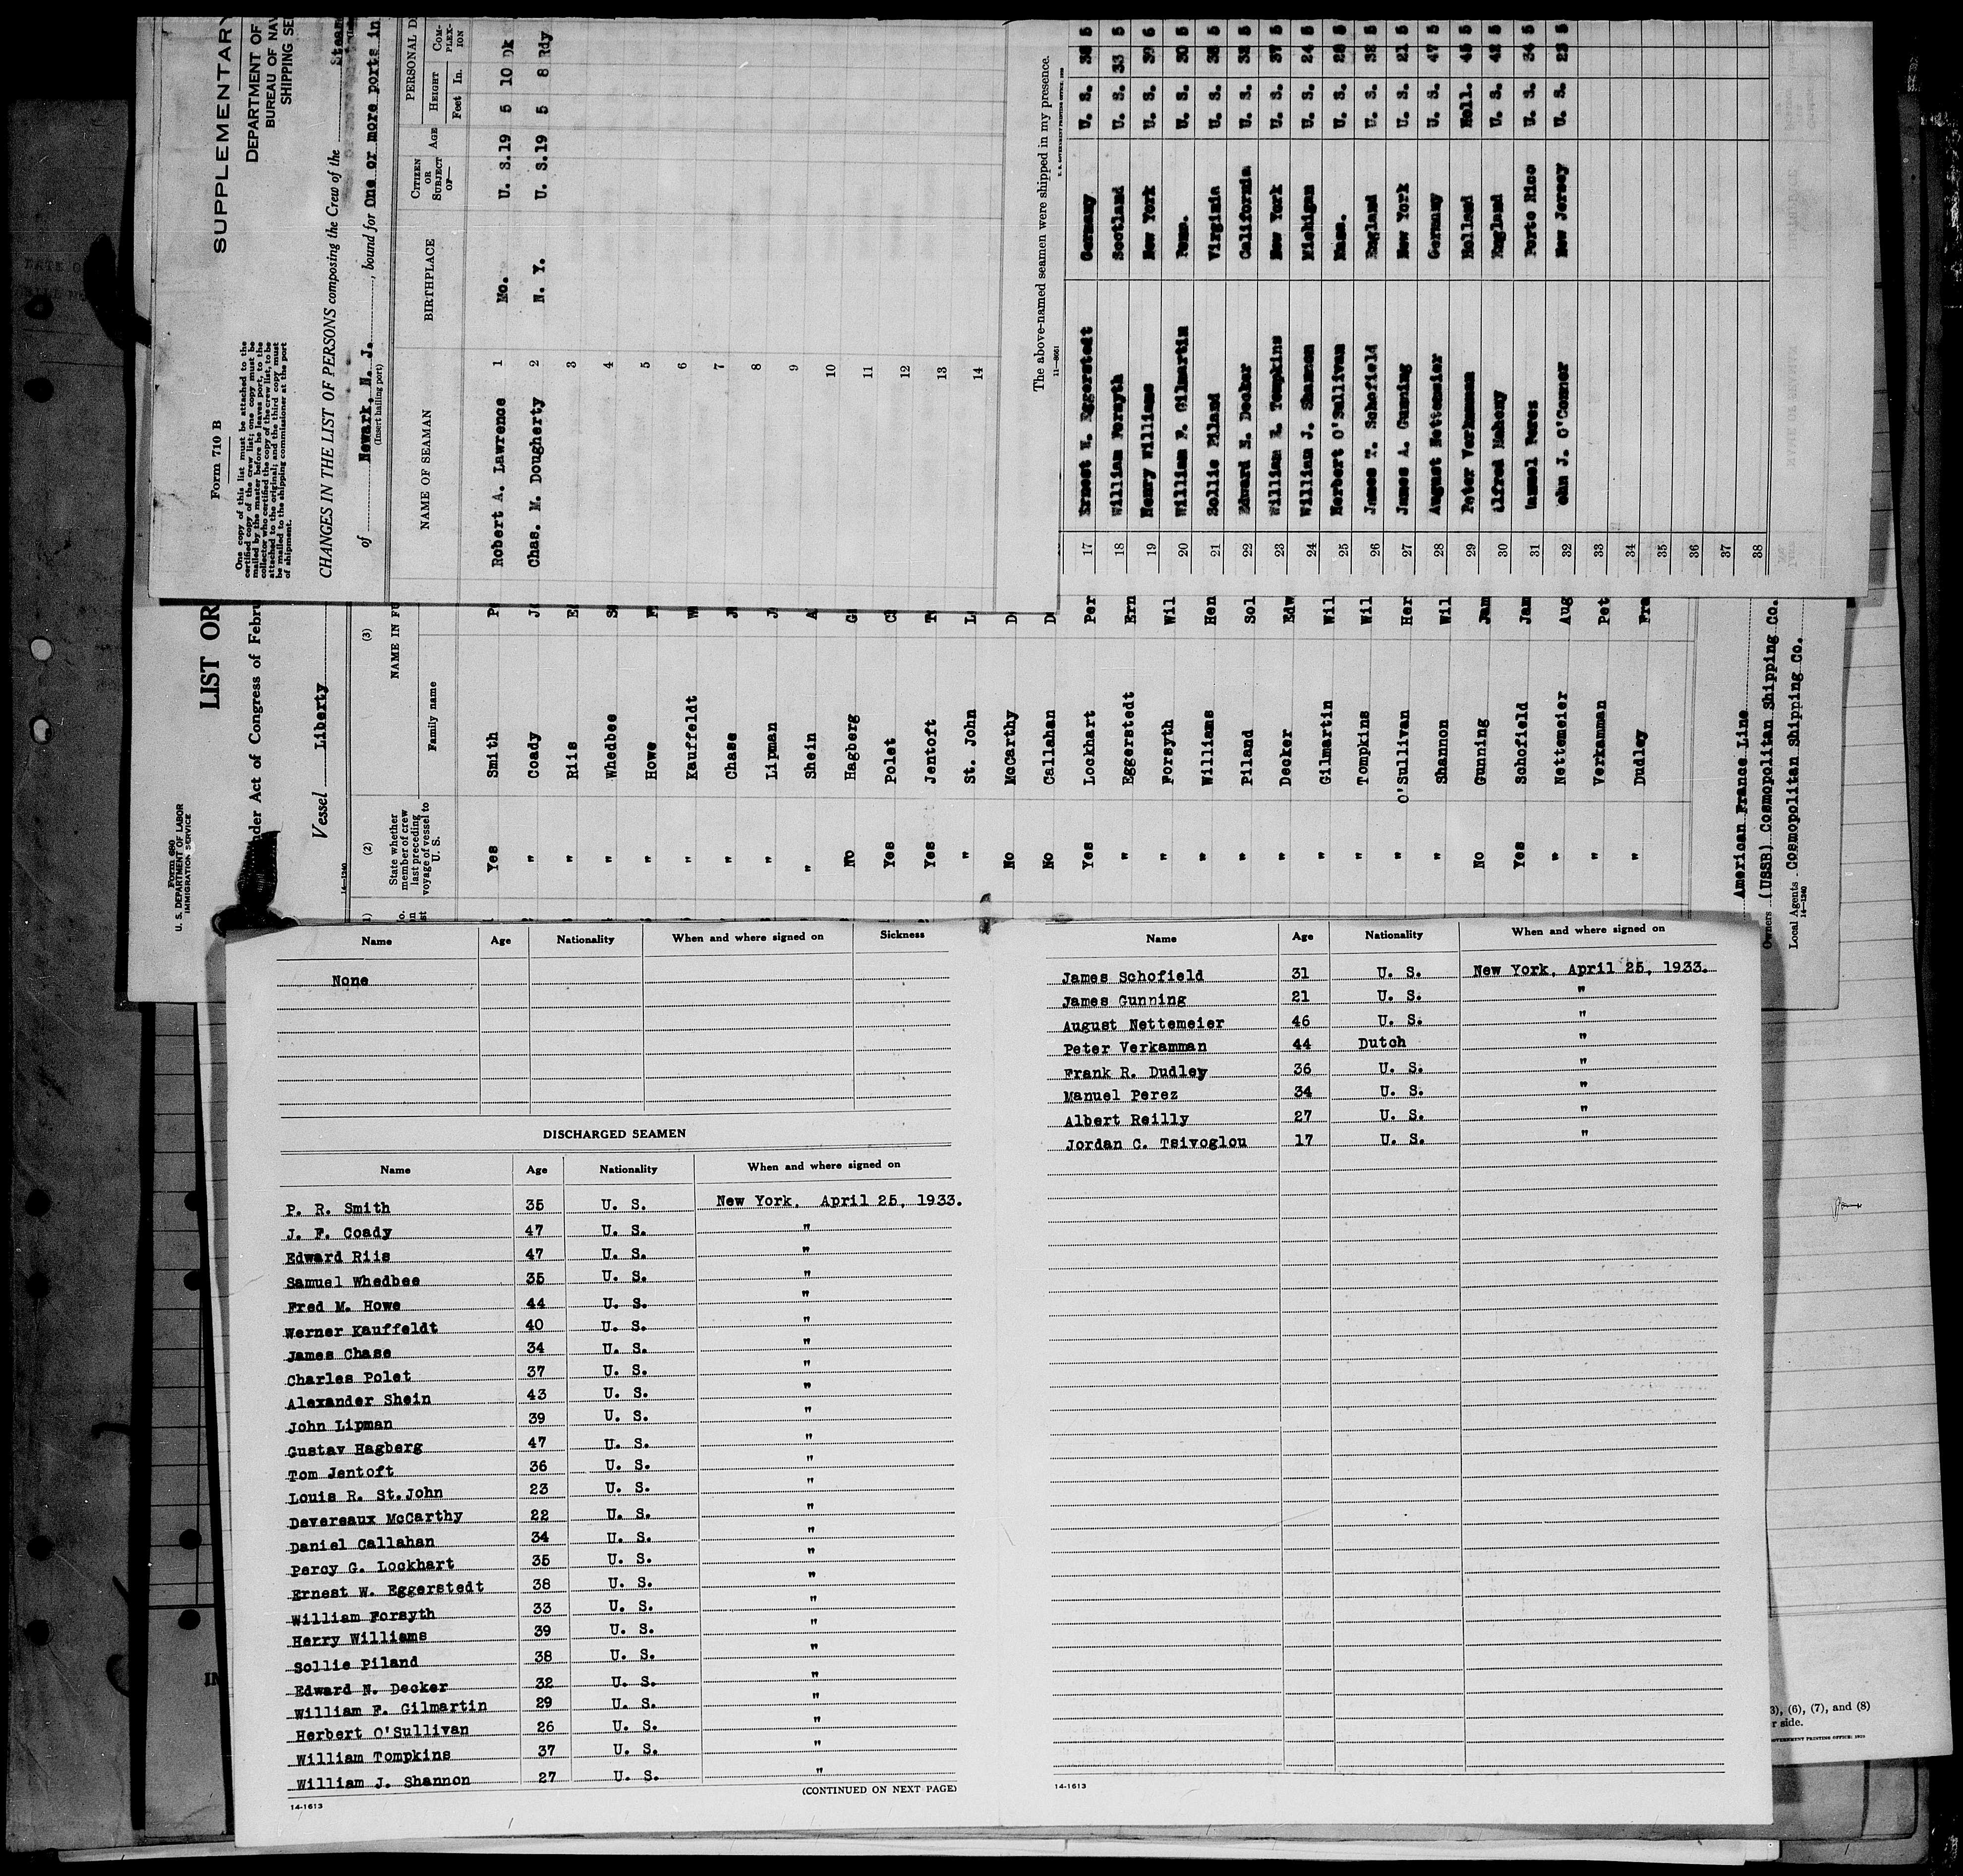 SUPPLEMENTARY
DEPARTMENT OF
BUREAU OF NAV
SHIPPING SE
Form 710 B
One copy of this list must be attached to the
certified copy of the crew list; one copy must be
mailed by the master before he leaves port, to the
collector who certified the copy of the crew list, to be
attached to the original; and the third copy must
be mailed to the shipping commissioner at the port
of shipment.
CHANGES IN THE LIST OF PERSONS composing the Crew of the Steam
of Newark, N. J., bound for One or more ports in
(Insert hailing port)
NAME OF SEAMAN BIRTHPLACE CITIZEN OR SUBJECT OF— AGE PERSONAL D
HEIGHT COM-PLEX-ION
Feet In.
Robert A. Lawrence 1 Mo. U. S. 19 5 10 Dk
Chas. M. Dougherty 2 N. Y. U. S. 19 5 8 Rdy
3
4
5
6
7
8
9
10
11
12
13
14
The above-named seamen were shipped in my presence.
11—8051
17 Ernest W. Eggerstedt Germany U. S. 38 5
18 William Forsyth Scotland U. S. 33 5
19 Henry Williams New York U. S. 39 5
20 William F. Gilmartin Penn. U. S. 30 5
21 Sollie Piland Virginia U. S. 38 5
22 Edward N. Decker California U. S. 32 5
23 William R. Tompkins New York U. S. 37 5
24 William J. Shannon Michigan U. S. 24 5
25 Herbert O'Sullivan Mass. U. S. 28 5
26 James T. Schofield England U. S. 32 5
27 James A. Gunning New York U. S. 21 5
28 August Nettemeier Germany U. S. 47 5
29 Peter Verkamman Holland Holl. 45 5
30 Alfred Maheny England U. S. 42 5
31 Manuel Perez Porto Rico U. S. 34 5
32 ohn J. O'Conner New Jersey U. S. 23 5
33
34
35
36
37
38
Form 680
U. S. DEPARTMENT OF LABOR
IMMIGRATION SERVICE
LIST OR
nder Act of Congress of Febru
Vessel Liberty
14—1240
(2) (3)
State whether member of crew last preceding voyage of vessel to U. S.
NAME IN FU
Family name
Yes Smith P
" Coady J
" Riis E
" Whedbee S
" Howe F
" Kauffeldt W
" Chase J
" Lipman J
" Shein A
No Hagberg G
Yes Polet C
Yes Jentoft T
" St. John L
No McCarthy D
No Callahan D
Yes Lockhart Per
" Eggerstedt Ern
" Forsyth Wil
" Williams Hen
" Piland Sol
" Decker Edw
" Gilmartin Wil
" Tompkins Wil
" O'Sullivan Her
" Shannon Wil
No Gunning Jam
Yes Schofield Jam
" Nettemeier Aug
" Verkamman Pet
" Dudley Fra
American France Line
Owners (USSB) Cosmopolitan Shipping Co.
Local Agents Cosmopolitan Shipping Co.
14—1240
Name Age Nationality When and where signed on Sickness
None
DISCHARGED SEAMEN
Name Age Nationality When and where signed on
P. R. Smith 35 U. S. New York, April 25, 1933.
J. F. Coady 47 U. S. "
Edward Riis 47 U. S. "
Samuel Whedbee 35 U. S. "
Fred M. Howe 44 U. S. "
Werner Kauffeldt 40 U. S. "
James Chase 34 U. S. "
Charles Polet 37 U. S. "
Alexander Shein 43 U. S. "
John Lipman 39 U. S. "
Gustav Hagberg 47 U. S. "
Tom Jentoft 36 U. S. "
Louis R. St.John 23 U. S. "
Devereaux McCarthy 22 U. S. "
Daniel Callahan 34 U. S. "
Percy G. Lockhart 35 U. S. "
Ernest W. Eggerstedt 38 U. S. "
William Forsyth 33 U. S. "
Herry Williams 39 U. S. "
Sollie Piland 38 U. S. "
Edward N. Decker 32 U. S. "
William F. Gilmartin 29 U. S. "
Herbert O'Sullivan 26 U. S. "
William Tompkins 37 U. S. "
William J. Shannon 27 U. S. "
(CONTINUED ON NEXT PAGE)
14-1613
Name Age Nationality When and where signed on
James Schofield 31 U. S. New York, April 25, 1933.
James Gunning 21 U. S. "
August Nettemeier 46 U. S. "
Peter Verkamman 44 Dutch "
Frank R. Dudley 36 U. S. "
Manuel Perez 34 U. S. "
Albert Reilly 27 U. S. "
Jordan C. Tsivoglou 17 U. S. "
14-1613
3), (6), (7), and (8)
r side.